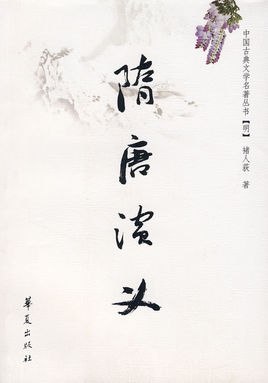 中国古典文学名著丛书【明】 褚人荻 著
隋唐演义
华夏出版社